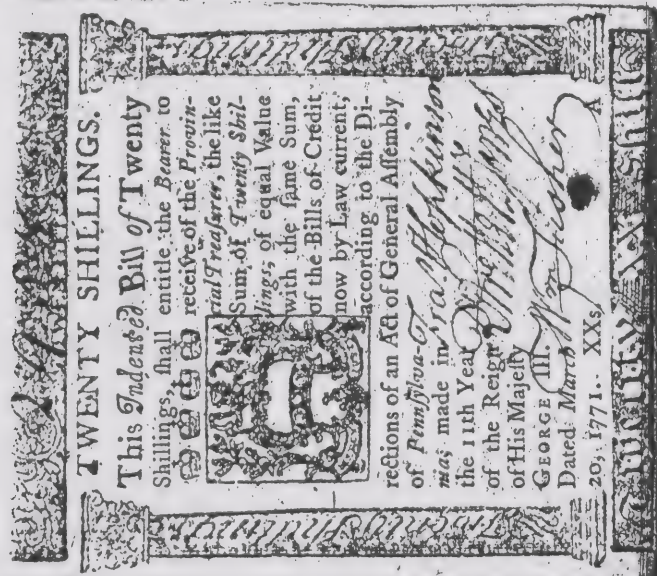 TWENTY SHILLINGS.
This Indented Bill of Twenty
Shillings, ſhall entitle the Bearer to
receive of the Provin-
cial Treaſurer, the like
Sum of Twenty Shil-
lings, of equal Value
with the ſame Sum,
of the Bills of Credit
now by Law current,
according to the Di-
rections of an Act of General Aſſembly
of Pennſylva-
made in Fra Hopkinson
the 11th Year
of the Reign
of His Majeſty
GEORGE III. Wm Fisher
Dated March
20, 1771. XXs. A
Twenty Shillings
Twenty Shillings